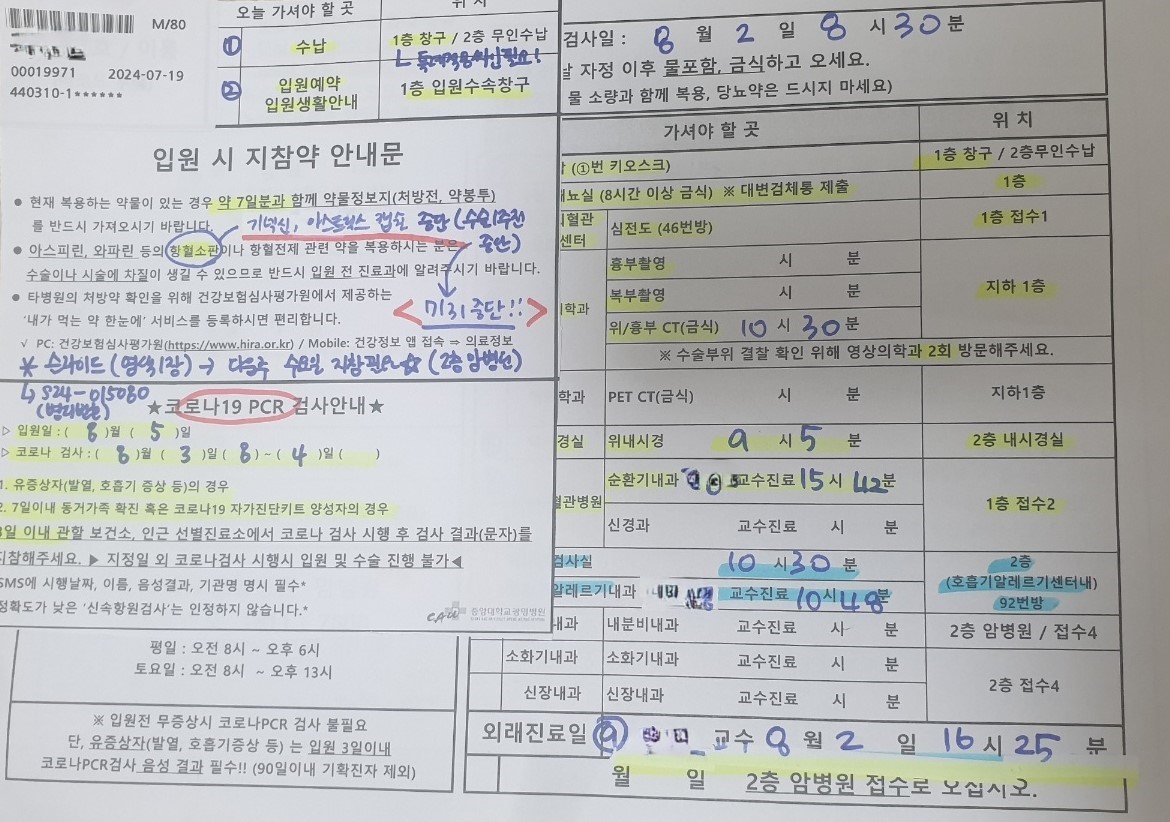 M/80
00019971 2024-07-19
440310-1******
오늘 가셔야 할 곳 위 치
① 수납 1층 창구 / 2층 무인수납
② 입원예약 입원생활안내 1층 입원수속창구
입원 시 지참약 안내문
● 현재 복용하는 약물이 있는 경우 약 7일분과 함께 약물정보지(처방전, 약봉투)
를 반드시 가져오시기 바랍니다.
기넥신, 아스트릭스 캡슐 중단 (수술1주전 중단)
● 아스피린, 와파린 등의 항혈소판이나 항혈전제 관련 약을 복용하시는 분은
수술이나 시술에 차질이 생길 수 있으므로 반드시 입원 전 진료과에 알려주시기 바랍니다.
● 타병원의 처방약 확인을 위해 건강보험심사평가원에서 제공하는
'내가 먹는 약 한눈에' 서비스를 등록하시면 편리합니다.
< 7/31 중단!! >
√ PC: 건강보험심사평가원(https://www.hira.or.kr) / Mobile: 건강정보 앱 접속 ⇒ 의료정보
* 슬라이드 (염색1장) → 다음주 수요일 지참 ☆ (2층 암병원)
↳ S24-015080
(병리번호)
★코로나19 PCR 검사안내★
▷ 입원일 : ( 8 )월 ( 5 )일
▷ 코로나 검사 : ( 8 )월 ( 3 )일 ( 8 ) ~ ( 4 )일 ( )
1. 유증상자(발열, 호흡기 증상 등)의 경우
2. 7일이내 동거가족 확진 혹은 코로나19 자가진단키트 양성자의 경우
3일 이내 관할 보건소, 인근 선별진료소에서 코로나 검사 시행 후 검사 결과(문자)를
지참해주세요. ▶ 지정일 외 코로나검사 시행시 입원 및 수술 진행 불가◀
SMS에 시행날짜, 이름, 음성결과, 기관명 명시 필수*
정확도가 낮은 '신속항원검사'는 인정하지 않습니다.*
CAU 중앙대학교광명병원
평일 : 오전 8시 ~ 오후 6시
토요일 : 오전 8시 ~ 오후 13시
※ 입원전 무증상시 코로나PCR 검사 불필요
단, 유증상자(발열, 호흡기증상 등) 는 입원 3일이내
코로나PCR검사 음성 결과 필수!! (90일이내 기확진자 제외)
검사일 : 8 월 2 일 8 시 30 분
날 자정 이후 물포함, 금식하고 오세요.
물 소량과 함께 복용, 당뇨약은 드시지 마세요)
가셔야 할 곳 위 치
납 (①번 키오스크) 1층 창구 / 2층무인수납
채뇨실 (8시간 이상 금식) ※ 대변검체통 제출 1층
혈관센터 심전도 (46번방) 1층 접수1
의학과 흉부촬영 시 분 지하 1층
복부촬영 시 분
위/흉부 CT(금식) 10 시 30 분
※ 수술부위 결찰 확인 위해 영상의학과 2회 방문해주세요.
학과 PET CT(금식) 시 분 지하1층
경실 위내시경 9 시 5 분 2층 내시경실
혈관병원 순환기내과 교수진료 15 시 42 분 1층 접수2
신경과 교수진료 시 분
검사실 10 시 30 분 2층
알레르기내과 교수진료 10 시 48 분 (호흡기알레르기센터내)
92번방
내과 내분비내과 교수진료 시 분 2층 암병원 / 접수4
소화기내과 소화기내과 교수진료 시 분 2층 접수4
신장내과 신장내과 교수진료 시 분
외래진료일 교수 8 월 2 일 16 시 25 분
월 일 2층 암병원 접수로 오십시오.